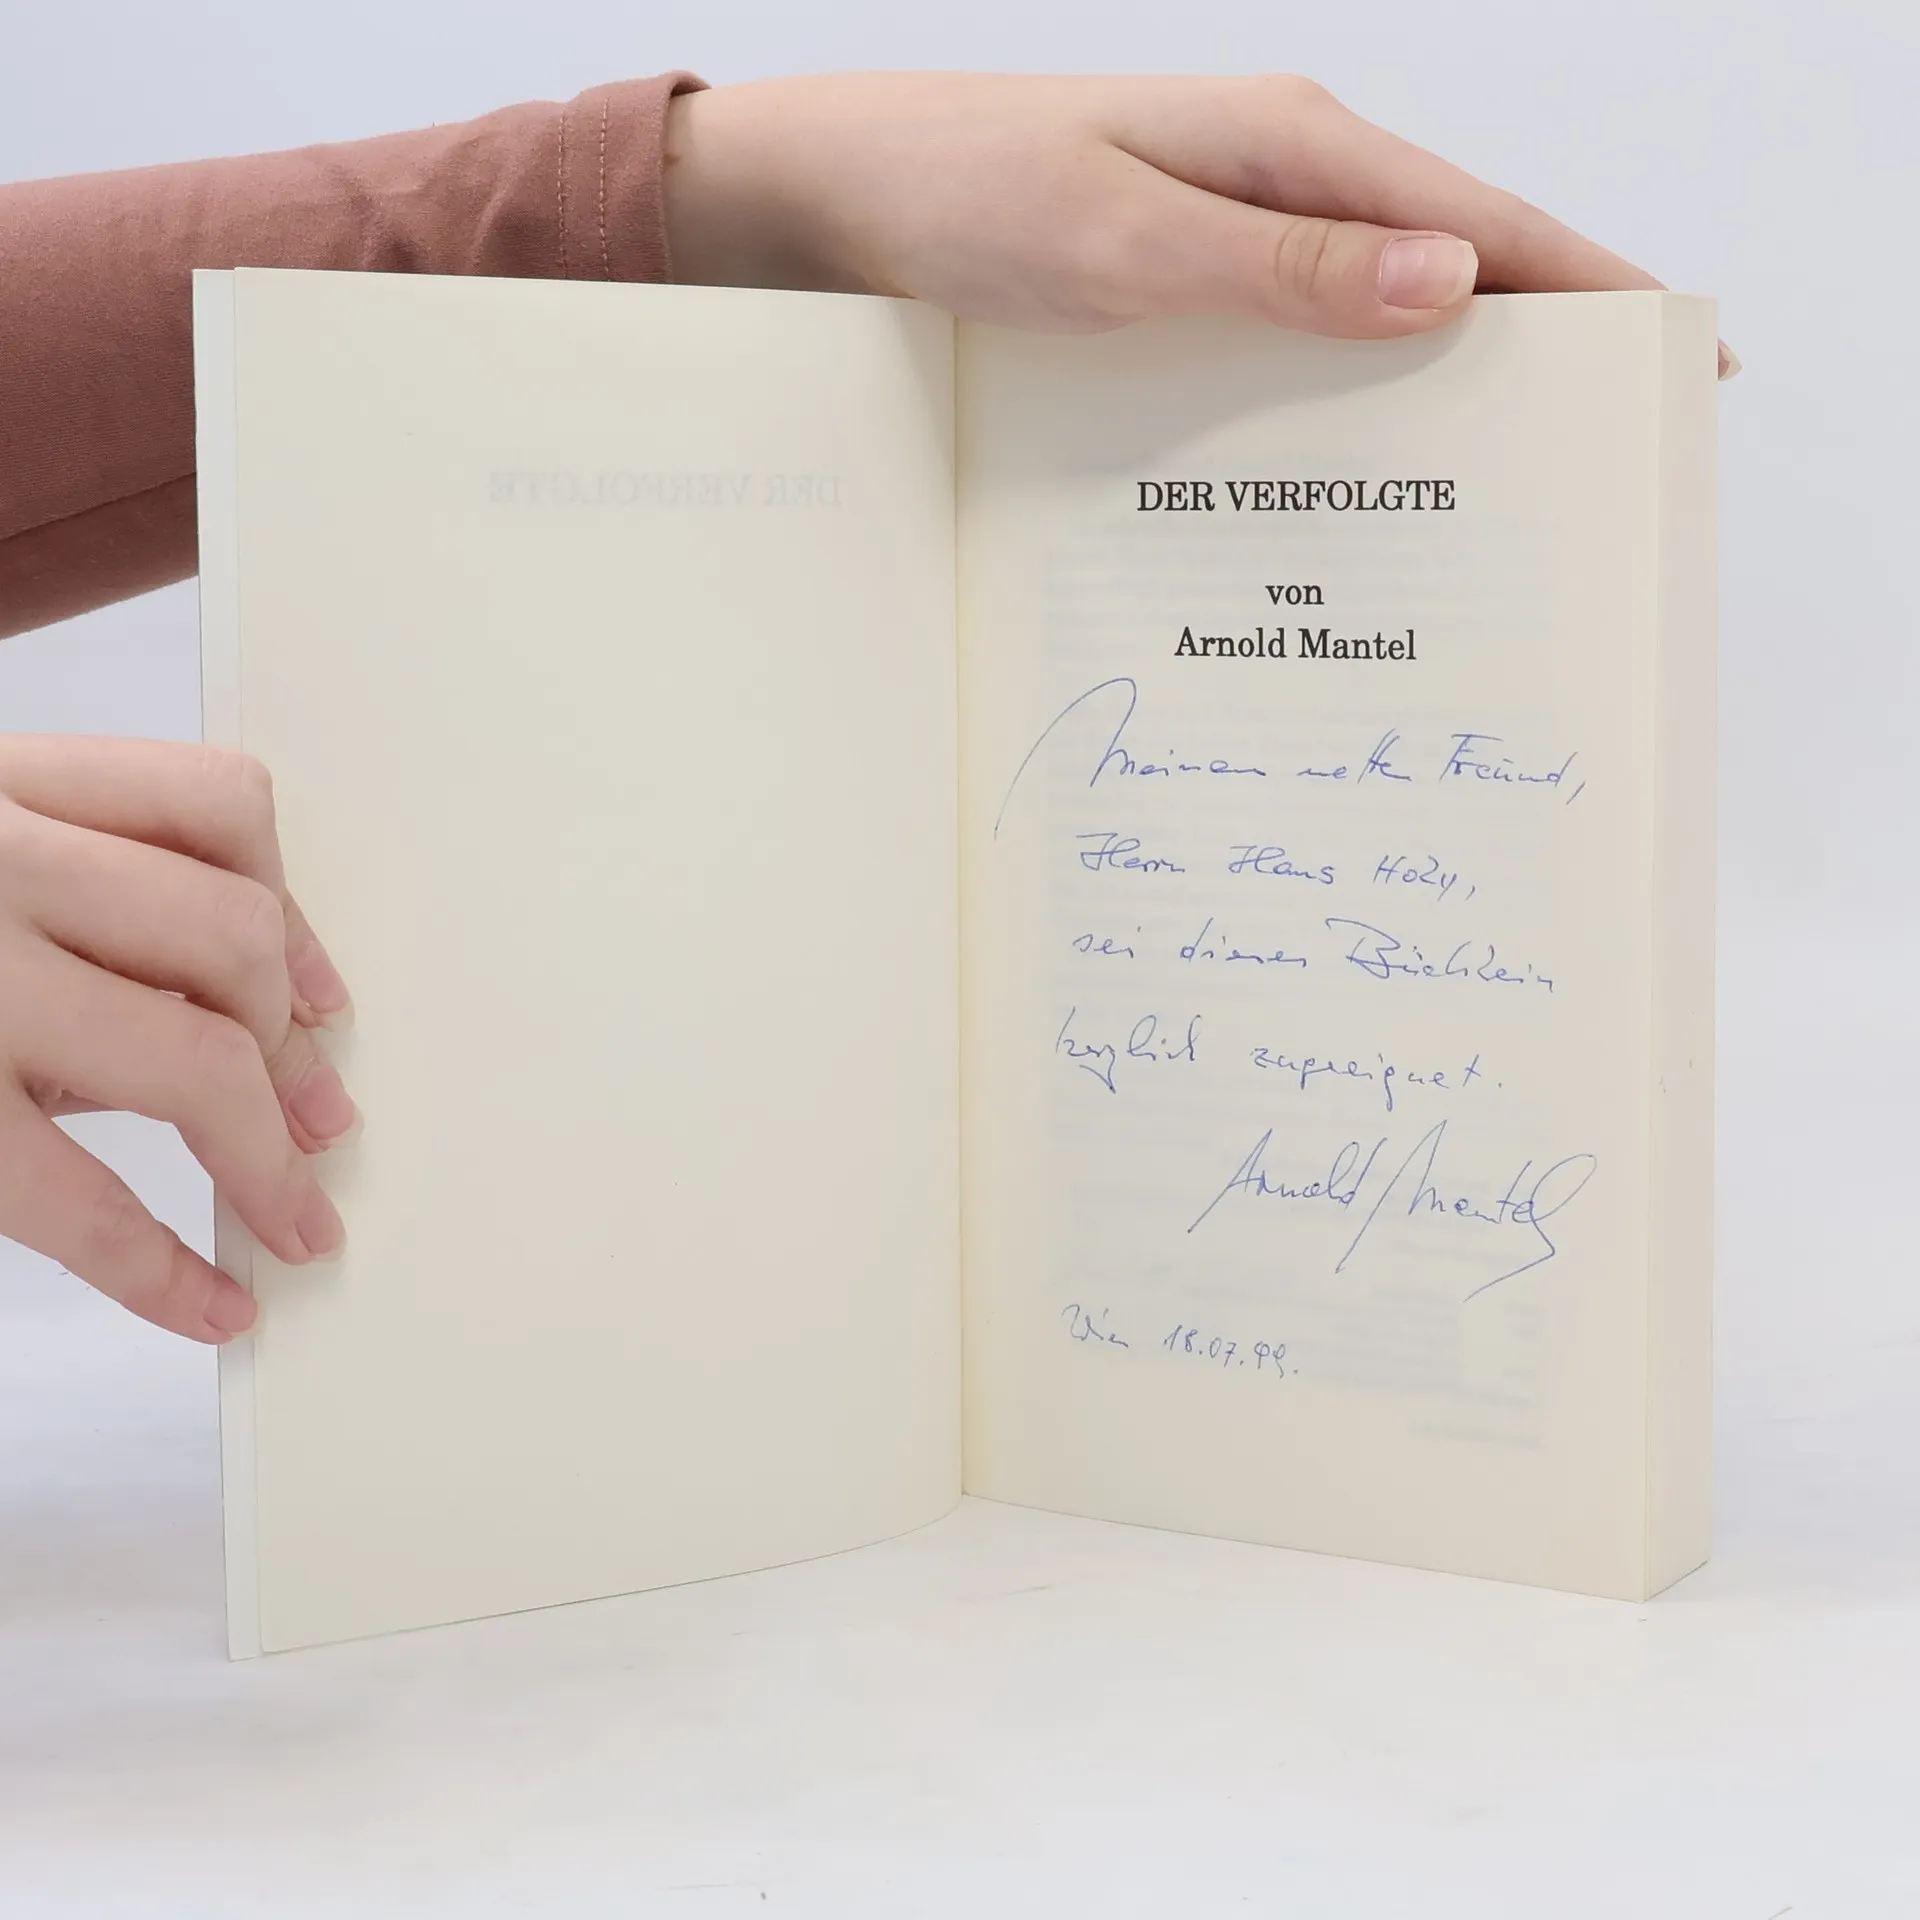 DER VERFOLGTE
von
Arnold Mantel
Meinem netten Freund,
Herrn Hans Holy,
sei dieses Büchlein
herzlich zugeeignet.
Arnold Mantel
Wien 18.07.99.